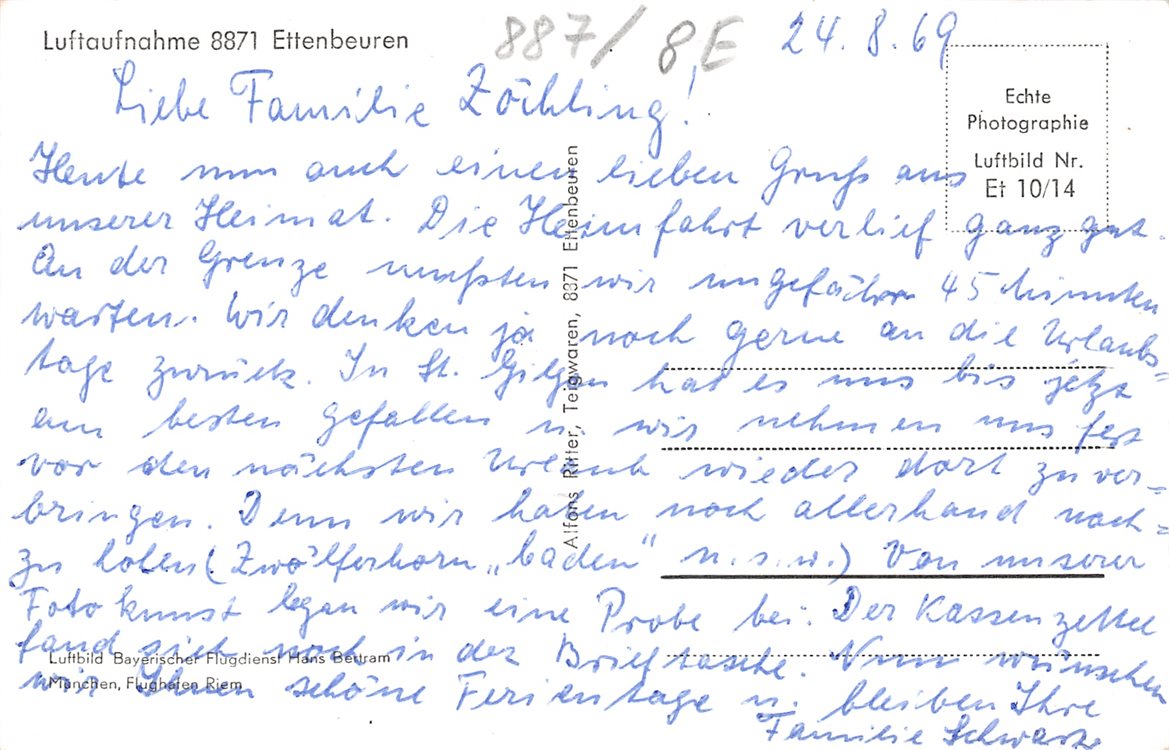 Luftaufnahme 8871 Ettenbeuren
887/ 8E
24. 8. 69
Echte
Photographie
Luftbild Nr.
Et 10/14
Liebe Familie Zöchling!
Heute nun auch einen lieben Gruß aus
unserer Heimat. Die Heimfahrt verlief ganz gut.
An der Grenze mußten wir ungefähr 45 Minuten
warten. Wir denken ja noch gerne an die Urlaubs=
tage zurück. In St. Gilgen hat es uns bis jetzt
am besten gefallen u. wir nehmen uns fest
vor den nächsten Urlaub wieder dort zu ver=
bringen. Denn wir haben noch allerhand nach=
zu holen (Zwölferhorn „baden" u. s. w.) Von unserer
Fotokunst legen wir eine Probe bei. Der Kassenzettel
fand sich noch in der Brieftasche. Nun wünschen
wir Ihnen schöne Ferientage u. bleiben Ihre
Familie Schwarz
Alfons Ritter, Teigwaren, 8871 Ettenbeuren
Luftbild Bayerischer Flugdienst Hans Bertram
München, Flughafen Riem